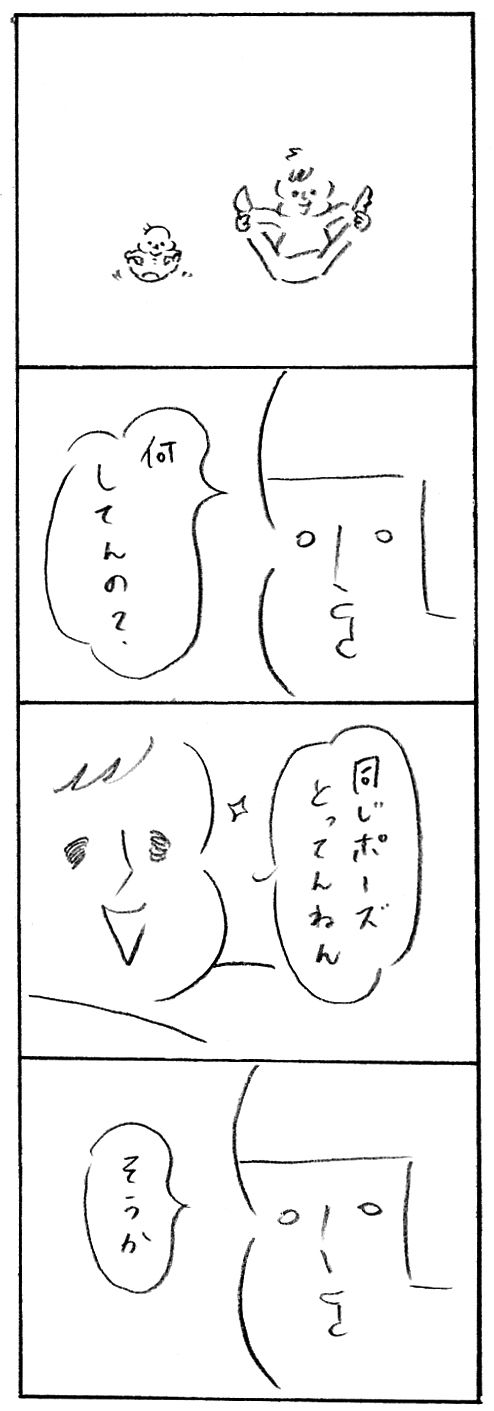 何
してんの?
同じポーズ
とってんねん
そうか